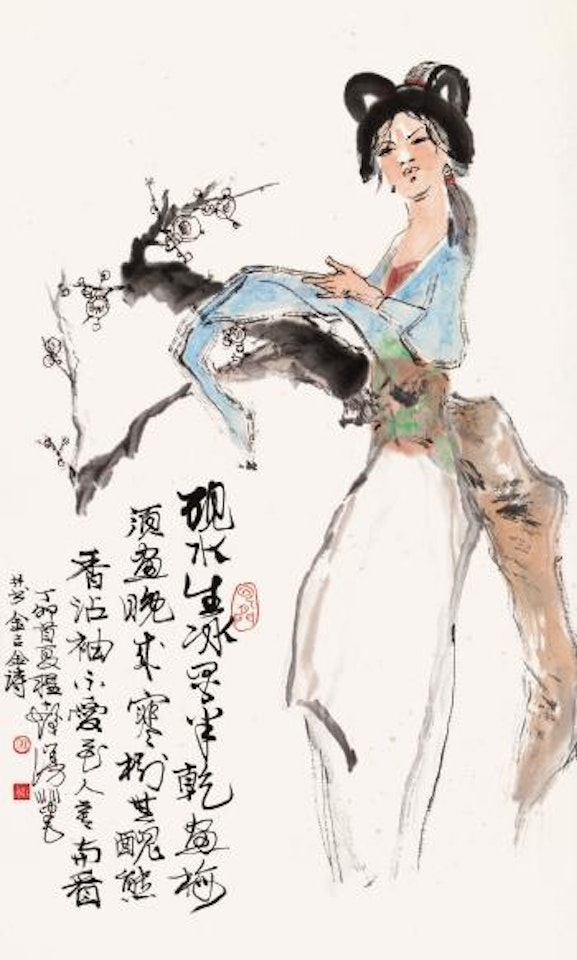 硯水生冰墨半乾畫梅
須畫晚來寒樹無醜態
香沾袖不愛花人莫與看
丁卯首夏程十髮漫筆
并書金吉金詩